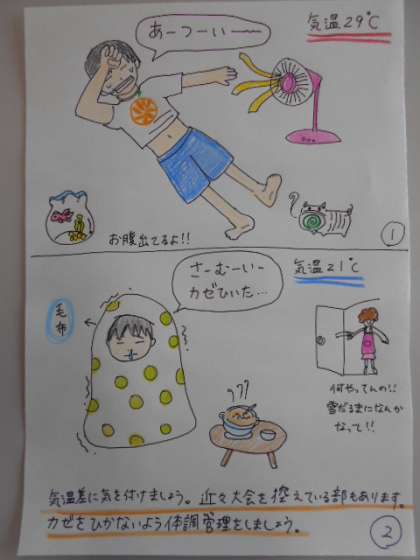 気温29℃
あーつーいー
お腹出てるよ!!
1
気温21℃
さーむーいー
カゼひいた…
毛布
何やってんの!!
雪だるまになんか
なって!!
気温差に気を付けましょう。近々大会を控えている部もあります。
カゼをひかないよう体調管理をしましょう。
2